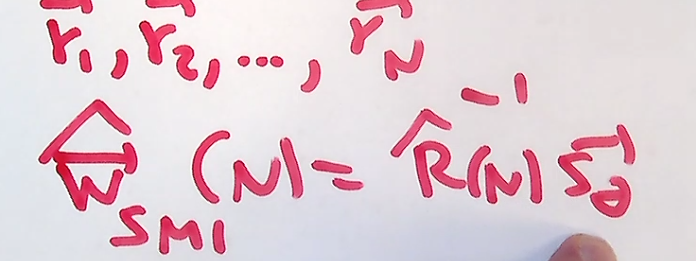 r⃗₁, r⃗₂, ..., r⃗_N
ŵ⃗_SMI (N) = R̂(N)⁻¹ s⃗_∂